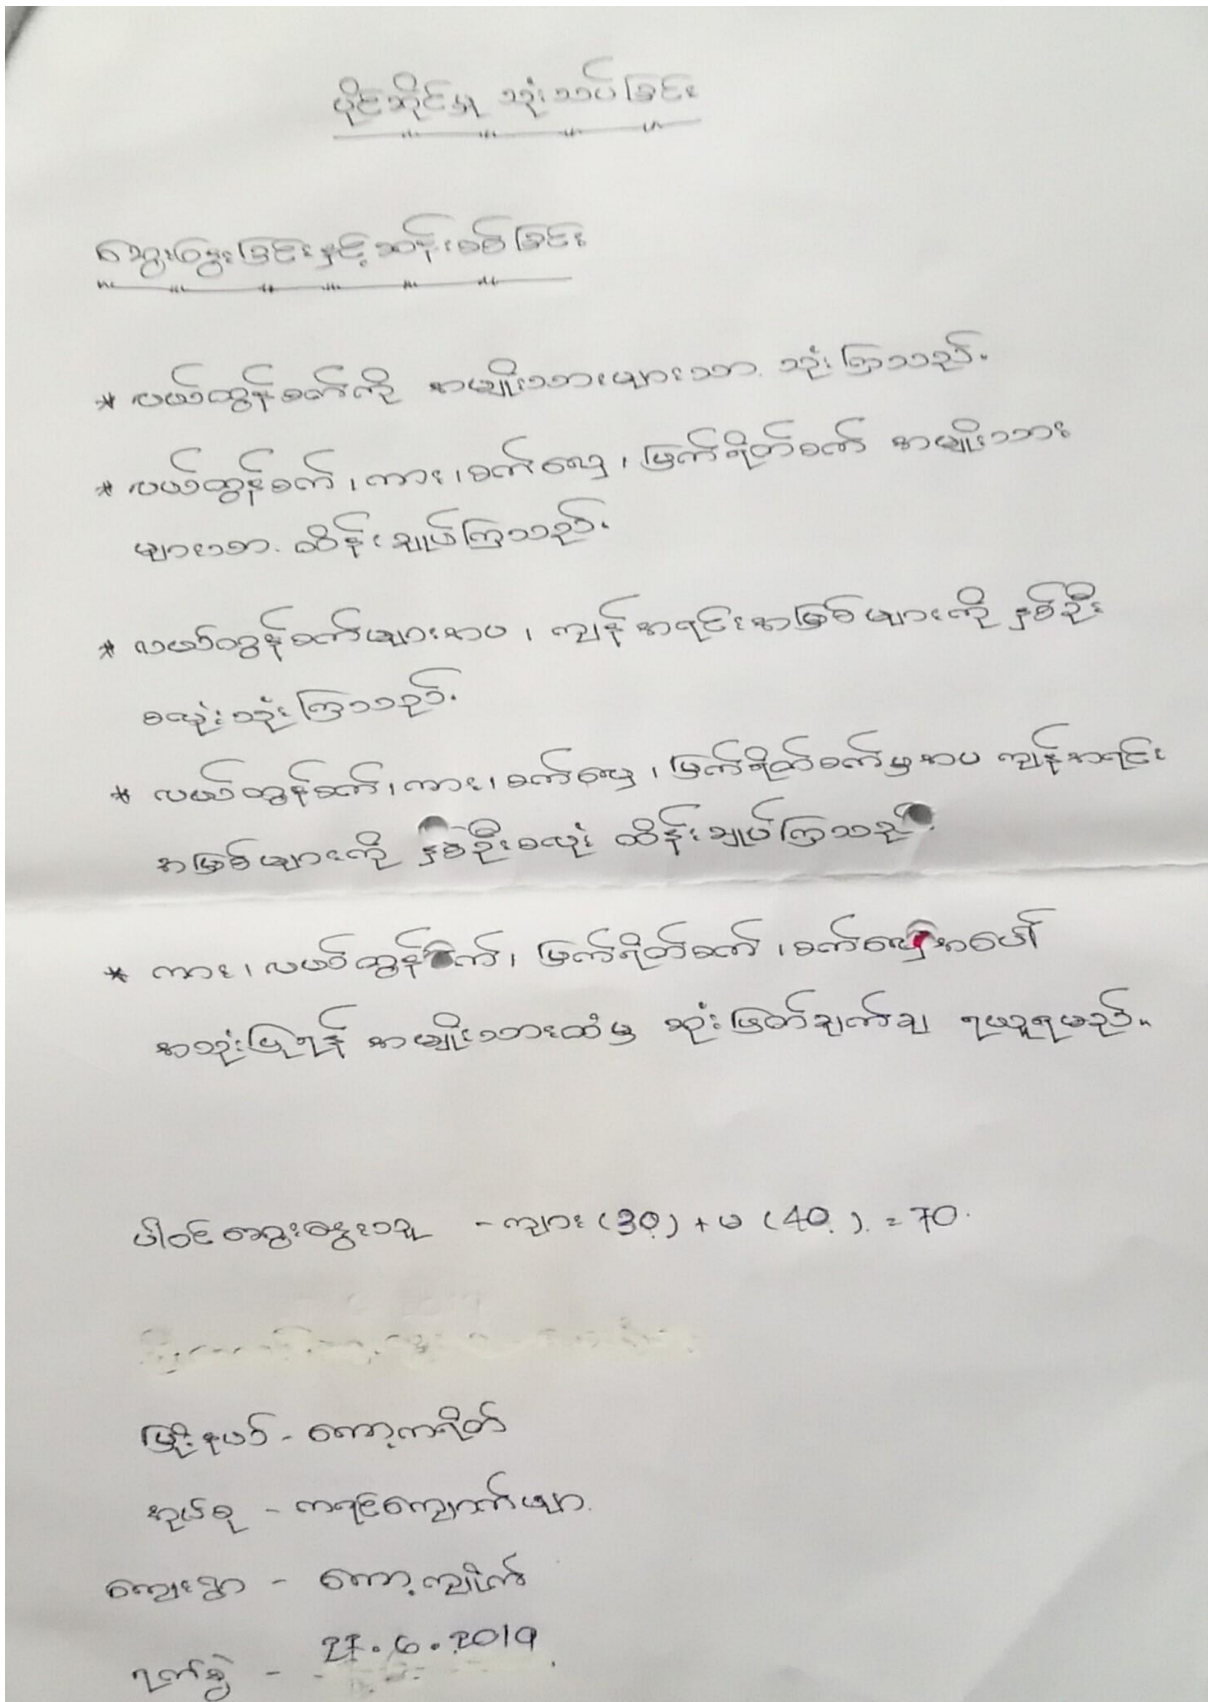 ပိုင်ဆိုင်မှု သုံးသပ်ခြင်း
ဆွေးနွေးခြင်းနှင့်ဆန်းစစ်ခြင်း
* လယ်ထွန်စက်ကို အမျိုးသားများသာ သုံးကြသည်.
* လယ်ထွန်စက်၊ ကား၊ စက်လှေ၊ မြက်ရိတ်စက် အမျိုးသား
များသာ ထိန်းချုပ်ကြသည်.
* လယ်ထွန်စက်များအပ၊ ကျန်အရင်းအမြစ်များကို နှစ်ဦး
စလုံးသုံးကြသည်.
* လယ်ထွန်စက်၊ ကား၊ စက်လှေ၊ မြက်ရိတ်စက်မှအပ ကျန်အရင်း
အမြစ်များကို နှစ်ဦးစလုံး ထိန်းချုပ်ကြသည်.
* ကား၊ လယ်ထွန်စက်၊ မြက်ရိတ်စက်၊ စက်လှေအပေါ်
အသုံးပြုရန် အမျိုးသားထံမှ ဆုံးဖြတ်ချက်ချ ရယူရမည်။
ပါဝင်ဆွေးနွေးသူ - ကျား (30) + မ (40) = 70.
မြို့နယ် - ကော့ကရိတ်
အုပ်စု - ကရင်ကျောက်ဖျာ
ကျေးရွာ - ကော့ကျိုက်
ရက်စွဲ - 27.6.2019